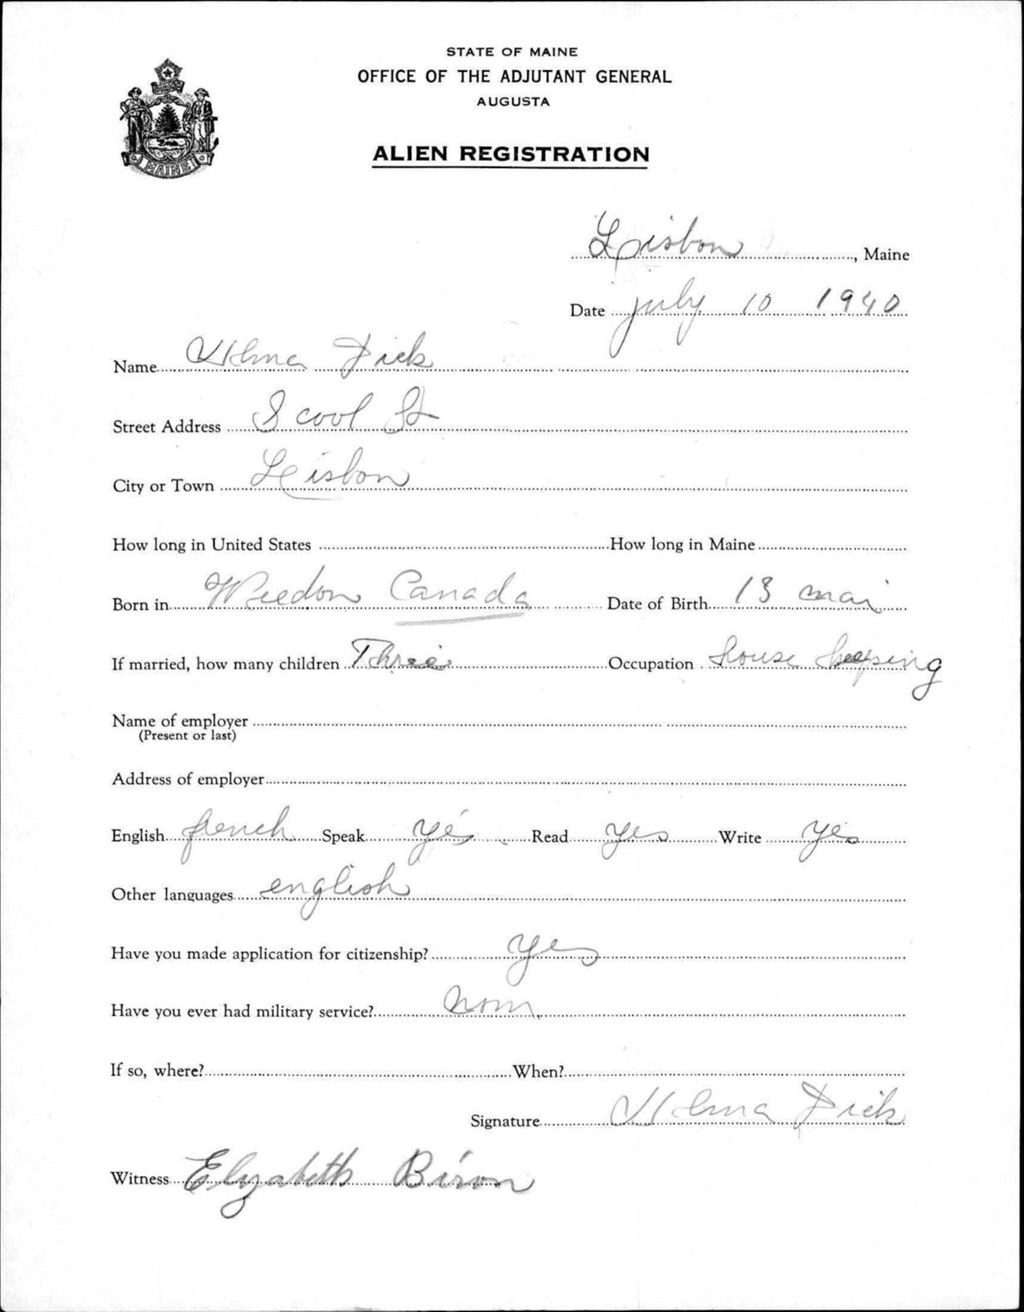 STATE OF MAINE
OFFICE OF THE ADJUTANT GENERAL
AUGUSTA
ALIEN REGISTRATION
MAINE
Lisbon, Maine
Date july 10 1940
Name Dick
Street Address Scool St
City or Town Lisbon
How long in United States How long in Maine
Born in Weedon Canada Date of Birth 13 mai
If married, how many children Three Occupation house keeping
Name of employer
(Present or last)
Address of employer
English french Speak yes Read yes Write yes
Other languages english
Have you made application for citizenship? yes
Have you ever had military service? nom
If so, where? When?
Signature Dick
Witness Elyzabeth Biron